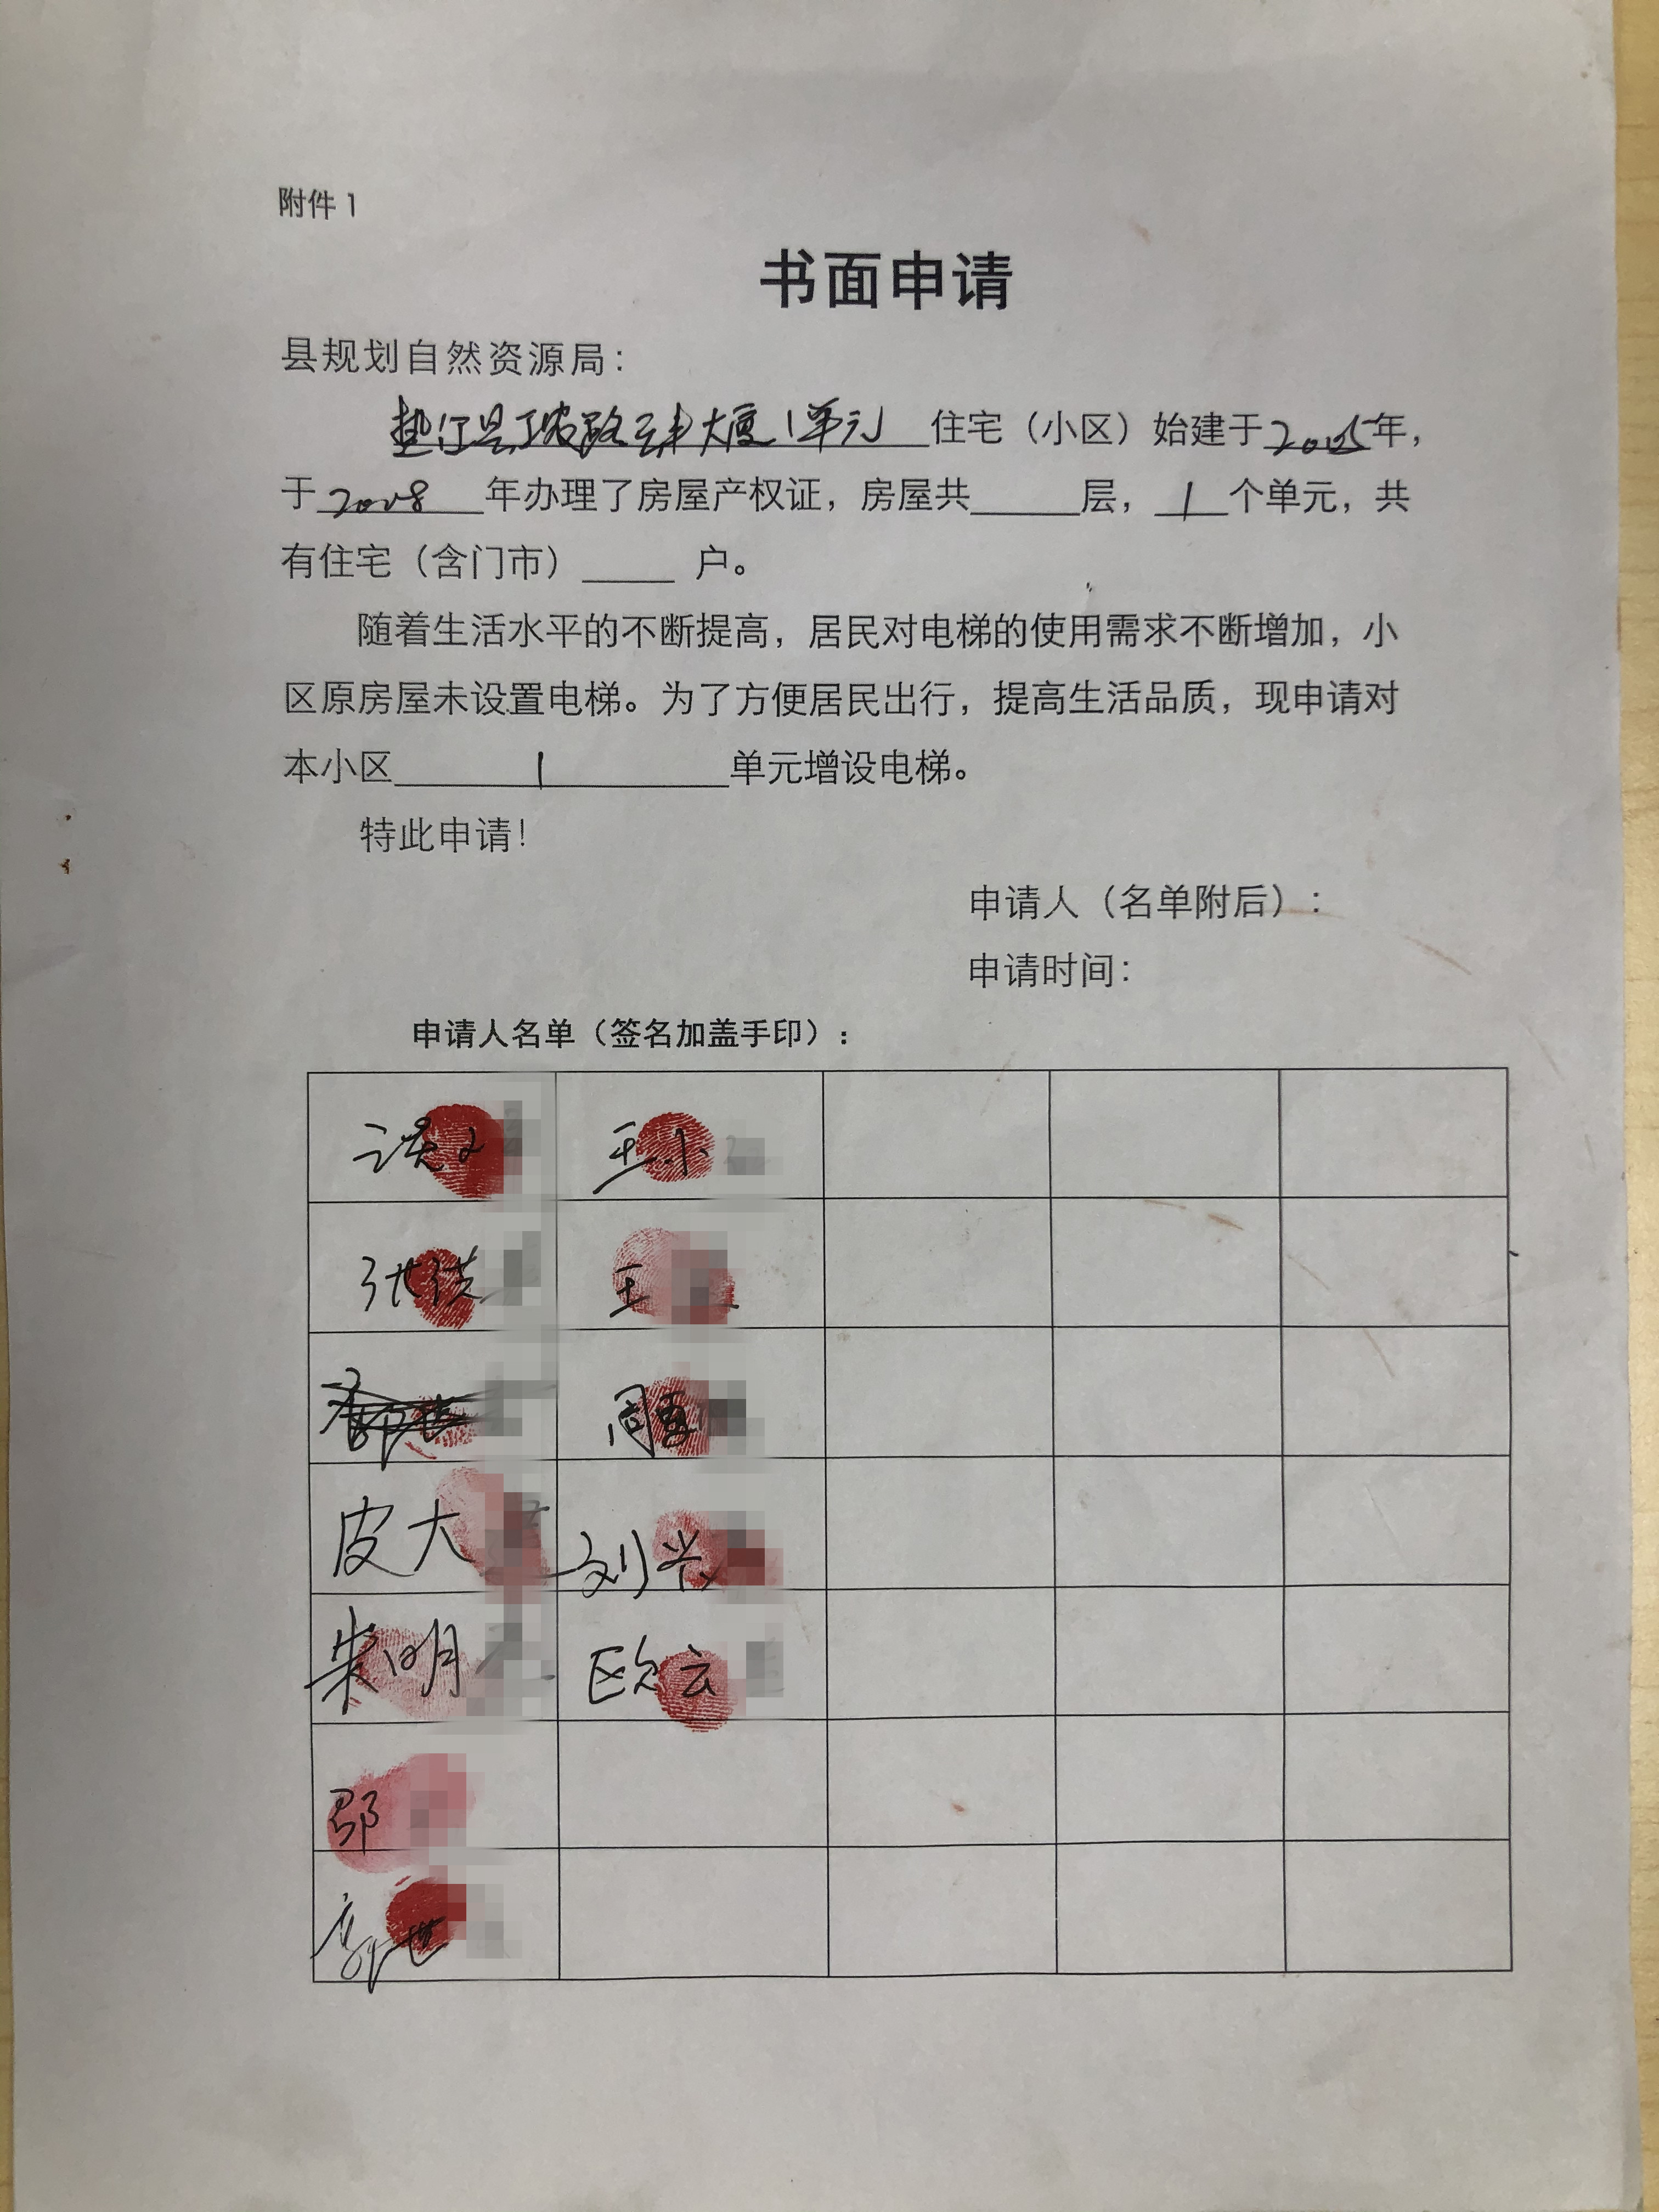 附件1
书面申请
县规划自然资源局：
垫江县工农路云丰大厦1单元 住宅（小区）始建于2005年，
于2008年办理了房屋产权证，房屋共____层，1个单元，共
有住宅（含门市）____ 户。
随着生活水平的不断提高，居民对电梯的使用需求不断增加，小
区原房屋未设置电梯。为了方便居民出行，提高生活品质，现申请对
本小区 1 单元增设电梯。
特此申请！
申请人（名单附后）：
申请时间：
申请人名单（签名加盖手印）：
王小
张洪 王
周
皮大 刘兴
朱明 欧云